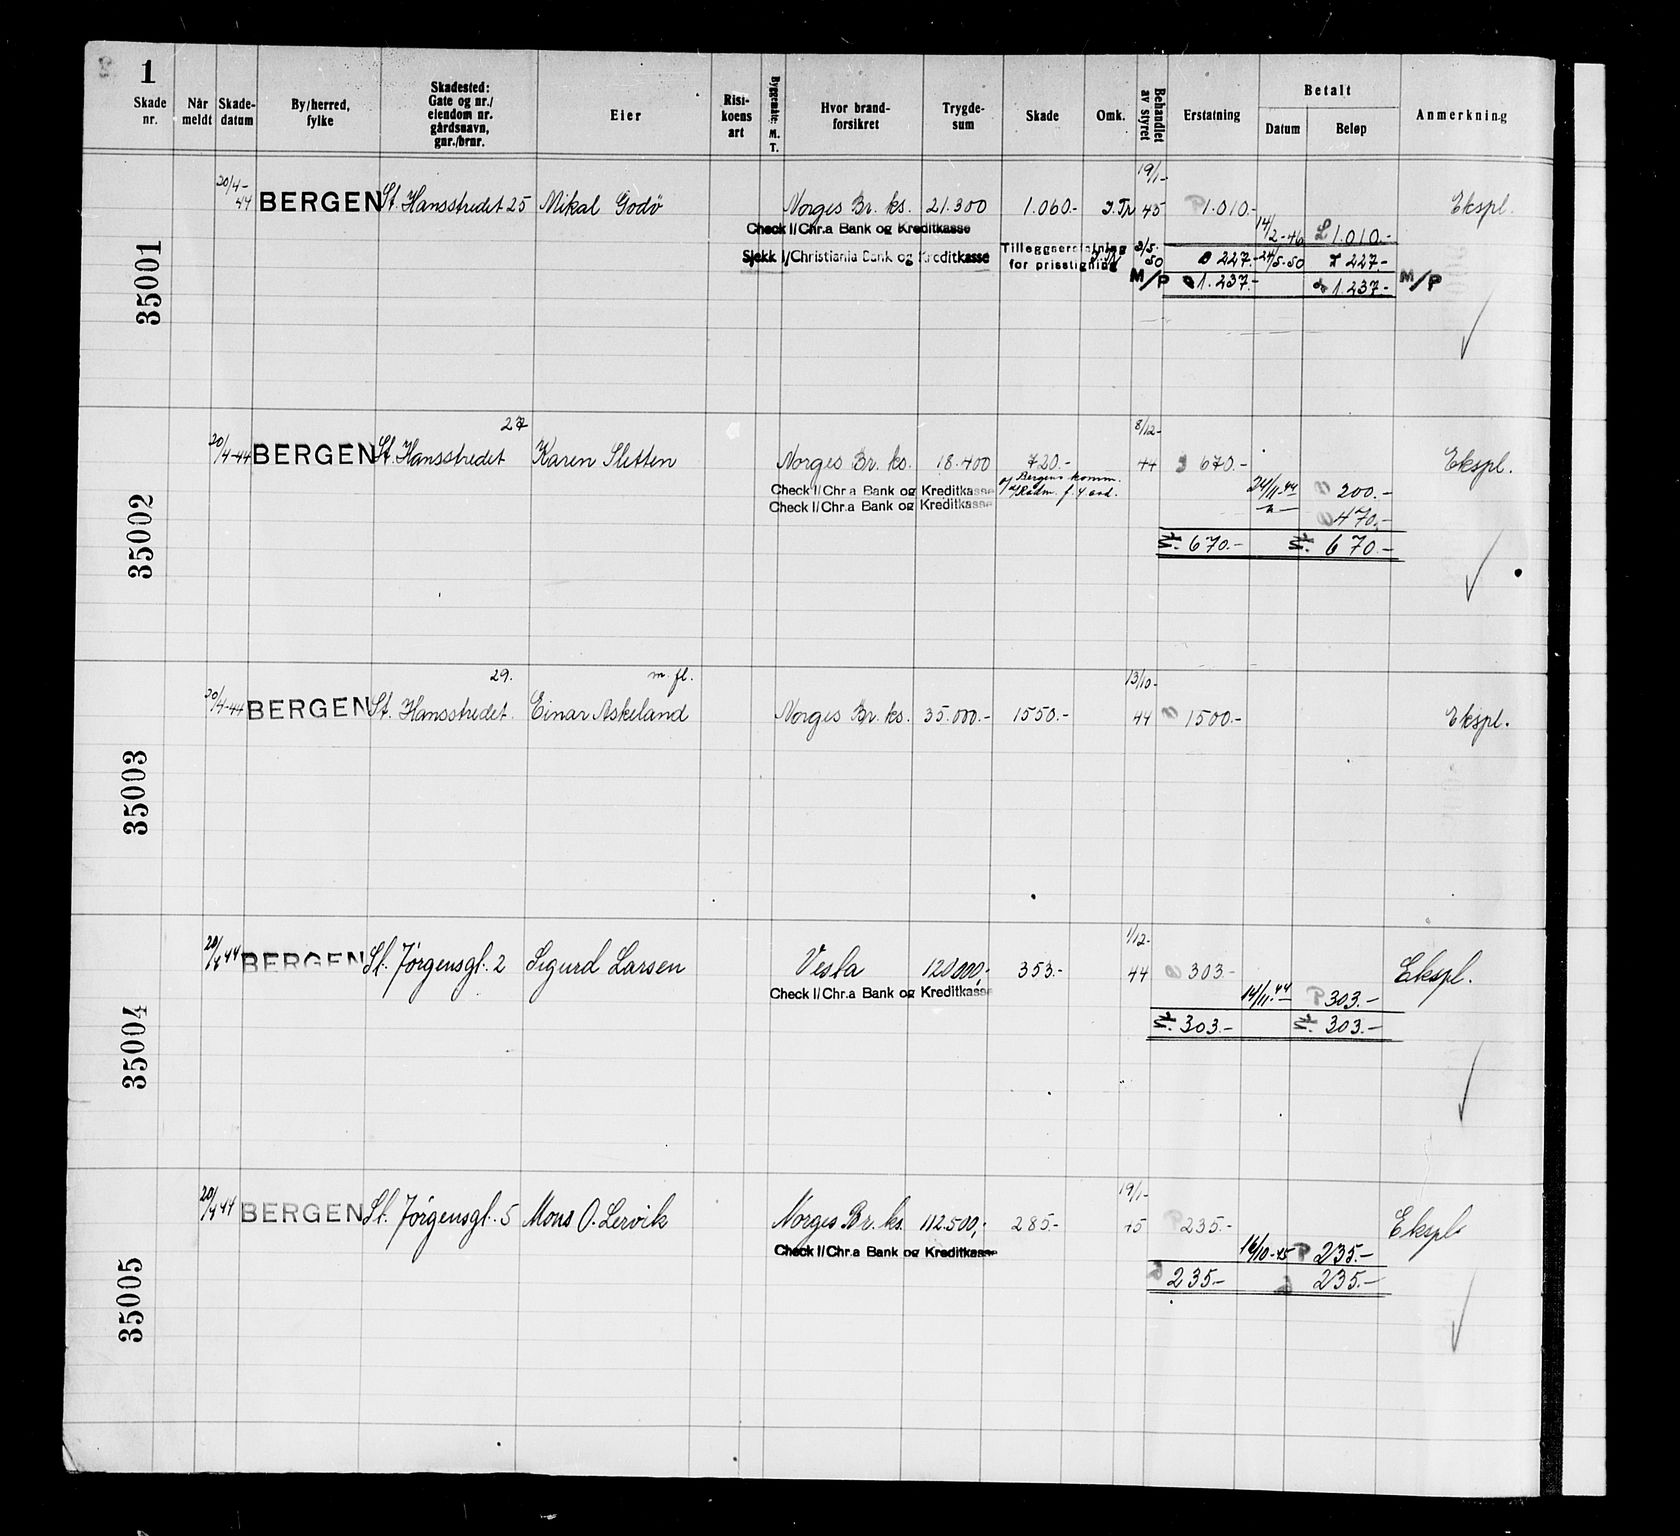 1
Skade nr.
Når meldt
Skade-datum
By/herred, fylke
Skadested: Gate og nr./ eiendom nr. gårdsnavn, gnr./brnr.
Eier
Risi-koens art
Byggemåte: M. T.
Hvor brand-forsikret
Trygde-sum
Skade
Omk.
Behandlet av styret
Erstatning
Betalt
Datum
Beløp
Anmerkning
35001
20/4-44 BERGEN St. Hansstredet 25 Mikal Godø Norges Br. ks. 21.300 1.060.- 19/1-45 1.010.- Ekspl.
Check I/Chr.a Bank og Kreditkasse 14/2-46 1.010.-
Sjekk I/Christiania Bank og Kreditkasse Tilleggserstatning for prisstigning 3/5-50 227.- 24/5-50 227.-
M/P 1.237.- 1.237.- M/P
35002
27
20/4-44 BERGEN St. Hansstredet Karen Sletten Norges Br. ks. 18.400 720.- 8/12-44 670.- Ekspl.
Check I/Chr.a Bank og Kreditkasse Bergens komm. 24/11-44 200.-
Check I/Chr.a Bank og Kreditkasse -"- 470.-
Kr. 670.- Kr. 670.-
35003
29. m. fl.
20/4-44 BERGEN St. Hansstredet. Einar Askeland Norges Br. ks. 35.000.- 1550.- 13/10-44 1500.- Ekspl.
35004
20/4 44 BERGEN St. Jørgensgt. 2 Sigurd Larsen Vesta 120000,- 353.- 1/12-44 303- Ekspl.
Check I/Chr.a Bank og Kreditkasse 14/11-44 303.-
Kr. 303.- Kr. 303.-
35005
20/4 44 BERGEN St. Jørgensgt. 5 Mons O. Lervik Norges Br. ks. 112.500,- 285- 19/1-45 235.- Ekspl.
Check I/Chr.a Bank og Kreditkasse 16/10-45 P 235.-
235.- 235.-